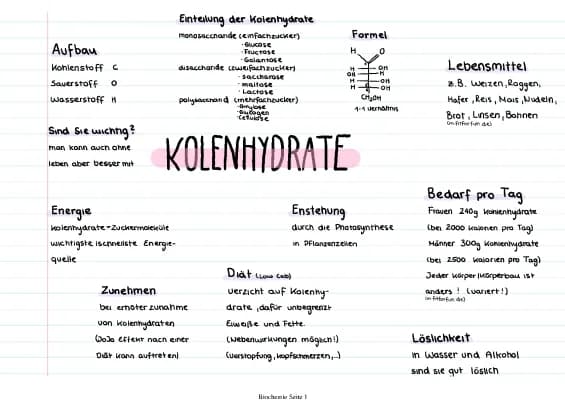 Einteilung der Kolenhydrate
monosaccharide (einfachzucker)
·Glucose
·Fructose
·Galantose
disaccharide (zweifachzucker)
·saccharose
·maltose
·Lactose
polysaccharid (mehrfachzucker)
·Amylose
·Glykogen
·Cellulose
Formel
H O
H OH
OH H
H OH
H OH
CH₂OH
1-1 verhältnis
Aufbau
Kohlenstoff C
Sauerstoff O
Wasserstoff H
Lebensmittel
z.B. Weizen, Roggen,
Hafer, Reis, Mais, Nudeln,
Brot, Linsen, Bohnen
(in fitforfun.de)
Sind sie wichtig?
man kann auch ohne
leben aber besser mit
KOLENHYDRATE
Energie
kolenhydrate=Zuckermoleküle
wichtigste schnellste Energie-
quelle
Enstehung
durch die Photosynthese
in Pflanzenzellen
Bedarf pro Tag
Frauen 240g kolenhydrate
(bei 2000 kalorien pro Tag)
Männer 300g kolenhydrate
(bei 2500 kalorien pro Tag)
Jeder körper/körperbau ist
anders! (variert!)
(in fitforfun.de)
Zunehmen
bei erhöter zunahme
von kolenhydraten
(JoJo Effekt nach einer
Diät kann auftreten)
Diät (Low Carb)
verzicht auf kolenhy-
drate, dafür unbegrenzt
Eiweiße und Fette.
(Nebenwirkungen möglich!)
(verstopfung, kopfschmerzen,..)
Löslichkeit
in Wasser und Alkohol
sind sie gut löslich
Biochemie Seite 1